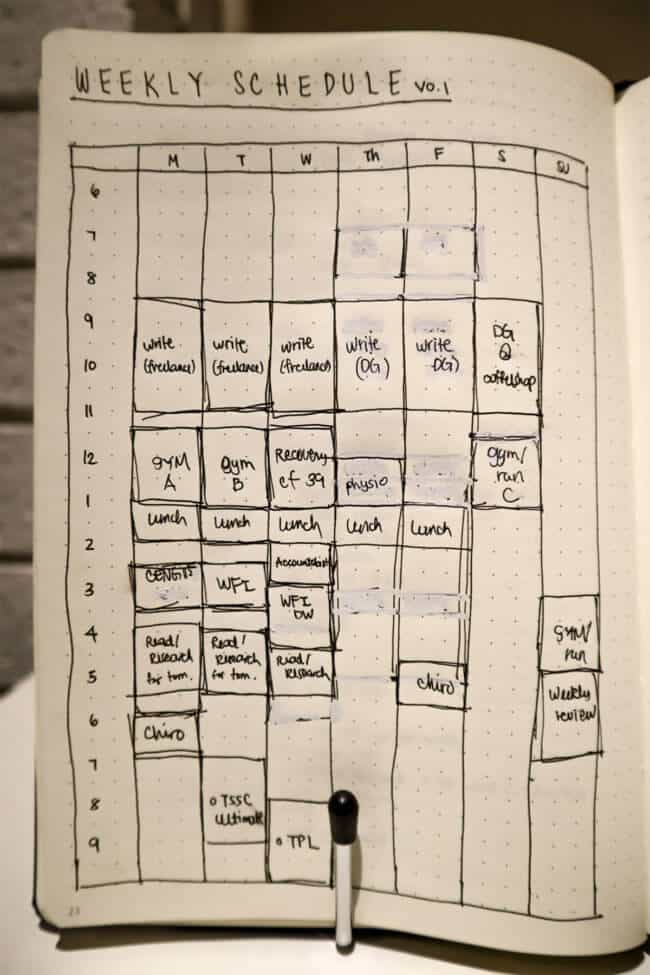 WEEKLY SCHEDULE V0.1
M T W Th F S SU
6
7
8
9
write write write write write DG
(freelance) (freelance) (freelance) (DG) DG) @
10
coffeeshop
11
12
GYM gym Recovery physio gym/
A B cf 39 run
C
1
lunch lunch lunch lunch lunch
2
Accountant
3
WFI WFI
DW
4
Read/ Read/ Read/ GYM/
Research Research Research run
for tom. for tom.
5
chiro Weekly
review
6
Chiro
7
8
o TSSC
Ultimate
9
o TPL
23